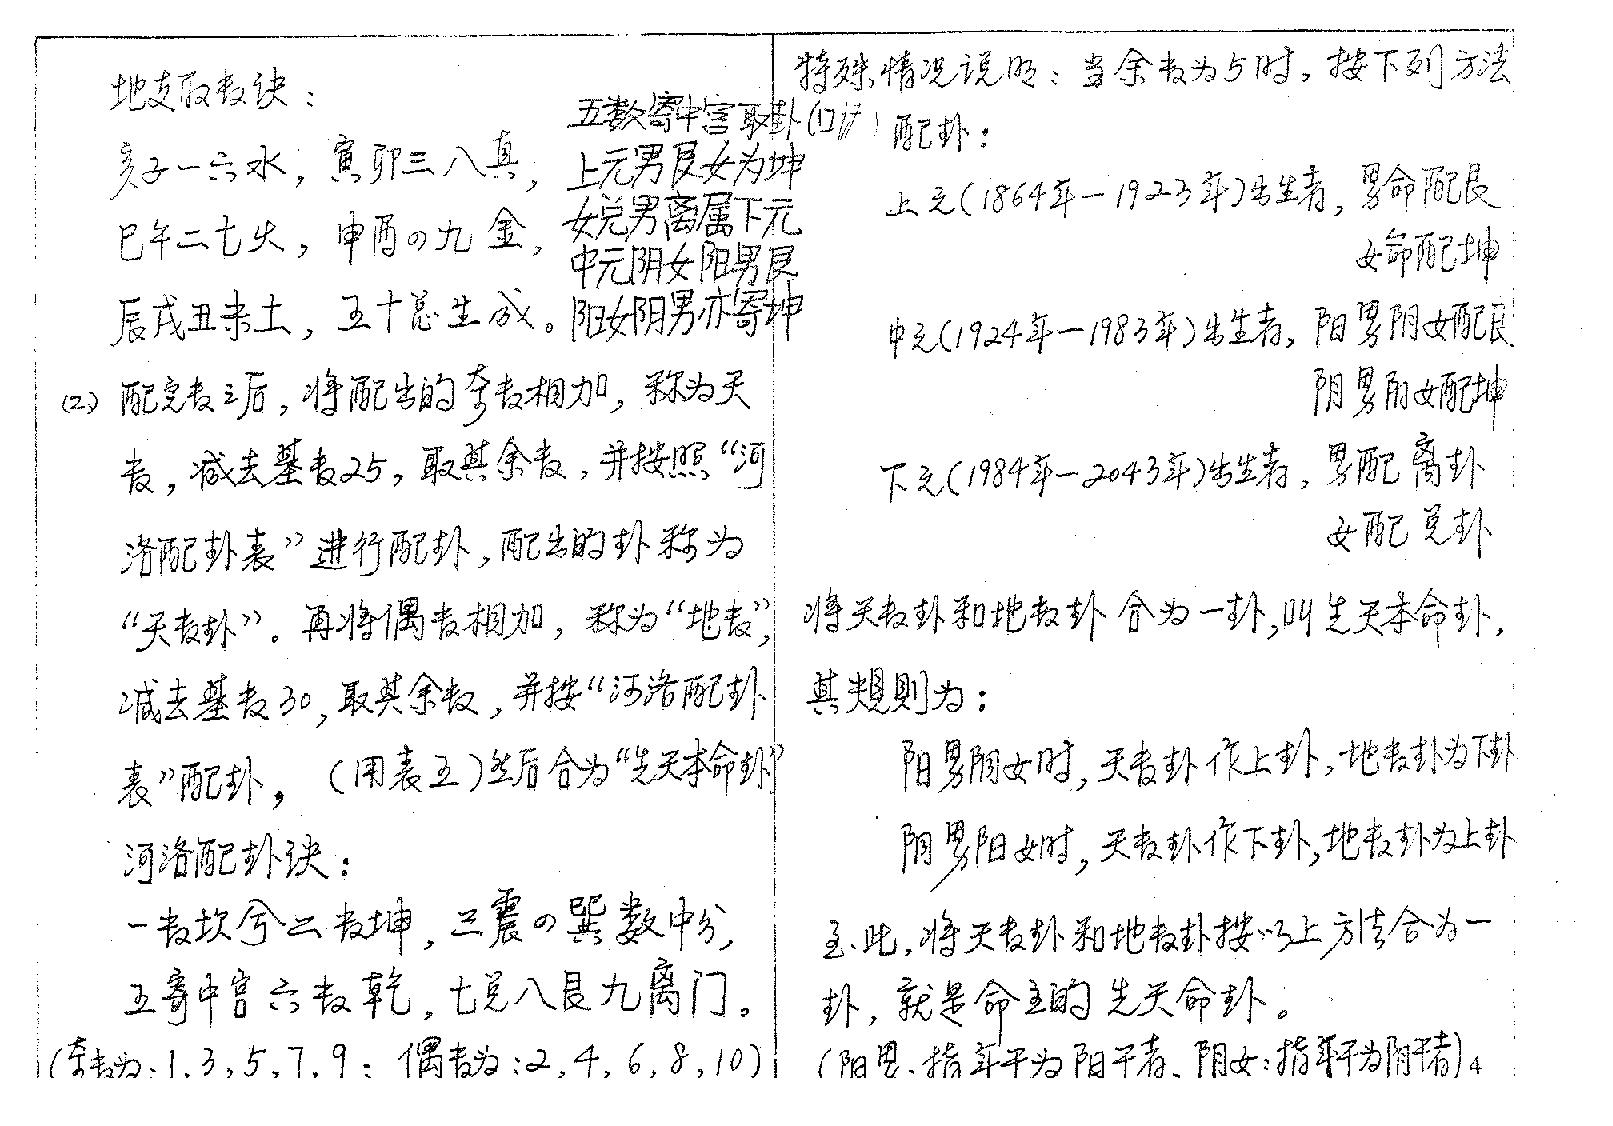 地支取数诀：
亥子一六水，寅卯三八真，
巳午二七火，申酉四九金，
辰戌丑未土，五十总生成。
五数寄中宫取卦(口诀)
上元男艮女为坤
女兑男离属下元
中元阴女阳男艮
阳女阴男亦寄坤
(2) 配完数之后，将配出的奇数相加，称为天
数，减去基数25，取其余数，并按照“河
洛配卦表”进行配卦，配出的卦称为
“天数卦”。再将偶数相加，称为“地数”，
减去基数30，取其余数，并按“河洛配卦
表”配卦，（用表五）然后合为“先天本命卦”
河洛配卦诀：
一数坎兮二数坤，三震四巽数中分，
五寄中宫六数乾，七兑八艮九离门。
(奇数为：1，3，5，7，9；偶数为：2，4，6，8，10)
特殊情况说明：当余数为5时，按下列方法
配卦：
上元(1864年—1923年)出生者，男命配艮
女命配坤
中元(1924年—1983年)出生者，阳男阴女配艮
阴男阳女配坤
下元(1984年—2043年)出生者，男配离卦
女配兑卦
将天数卦和地数卦合为一卦，叫先天本命卦，
其规则为：
阳男阴女时，天数卦作上卦，地数卦为下卦
阴男阳女时，天数卦作下卦，地数卦为上卦
至此，将天数卦和地数卦按以上方法合为一
卦，就是命主的先天命卦。
(阳男：指年干为阳干者、阴女：指年干为阴干者) 4